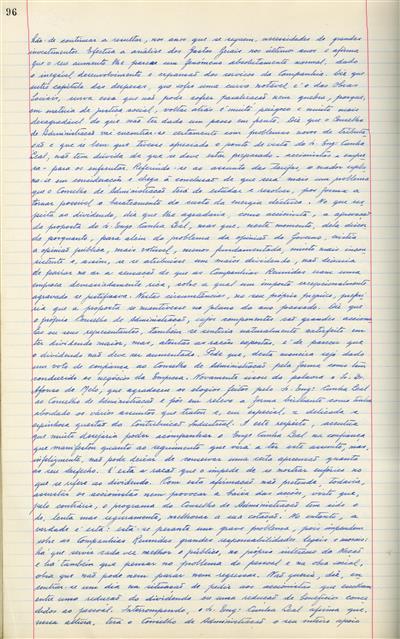 96
hão de continuar a resultar, nos anos que se seguem, necessidades de grandes
investimentos. Efectua a análise dos Gastos Gerais nos últimos anos e afirma
que o seu aumento lhe parece um fenómeno absolutamente normal, dado
o inegável desenvolvimento e expansão dos serviços da Companhia. Diz que
outro capítulo das despesas, que sofre uma curva notável é o das Obras
Sociais, curva essa que não pode sofrer paralização nem quebra, porque,
em matéria de justiça social, voltar atrás é muito perigoso e muito mais
desagradável do que não ter dado um passo em frente. Diz que o Conselho
de Administração vai encontrar-se certamente com problemas novos de tributa-
ção e que se bem que tivesse apreciado o ponto de vista do Sr. Engº. Cunha
Leal, não tem dúvida de que se deve estar preparado - accionistas e empre-
sa - para os enfrentar. Referindo-se ao assunto das tarifas, o orador explica
se em consideração e chega à conclusão de que será mais um problema
que o Conselho de Administração terá de estudar e resolver, por forma a
tornar possível o barateamento do custo da energia eléctrica. No que res-
peita ao dividendo, diz que lhe agradaria, como accionista, a aprovação
da proposta do Sr. Engº. Cunha Leal, mas que, neste momento, dela discor-
da porquanto, para além do problema da opinião do Governo, existe
a opinião pública, mais volúvel, menos fundamentada, muito mais incon-
sistente e, assim, se se atribuísse um maior dividendo, não deixaria
de pairar no ar a sensação de que as Companhias Reunidas eram uma
empresa demasiadamente rica, sobre a qual um imposto excepcionalmente
agravado se justificava. Nestas circunstâncias, no seu próprio prejuízo, prefe-
ria que a proposta se mantivesse no plano do ano passado. Diz que
o próprio Conselho de Administração, cujos componentes são grandes accionis-
tas ou seus representantes, também se sentiria naturalmente satisfeito em
ter dividendo maior, mas, atentas as razões expostas, é de parecer que
o dividendo não deve ser aumentado. Pede que, desta maneira seja dado
um voto de confiança ao Conselho de Administração pela forma como tem
conduzido os negócios da Empresa. Novamente usou da palavra o Sr. Dr.
Afonso de Melo, que agradeceu os elogios feitos pelo Sr. Engº. Cunha Leal
ao Conselho de Administração e pôs em relevo a forma brilhante como tinha
abordado os vários assuntos que tratou e, em especial, a delicada e
espinhosa questão da Contribuição Industrial. A este respeito, acentua
que muito desejaria poder acompanhar o Engº Cunha Leal na confiança
que manifestou quanto ao seguimento que virá a ter este assunto, mas,
infelizmente, não pode deixar de conservar uma certa apreensão quanto
ao seu desfecho. É esta a razão que o impede de se mostrar eufórico no
que se refere ao dividendo. Com esta afirmação não pretende, todavia,
assustar os accionistas nem provocar a baixa das acções, visto que,
pelo contrário, o programa do Conselho de Administração tem sido o
de, lenta mas seguramente, melhorar a sua cotação. No entanto, a
verdade é esta: está-se perante um grave problema, pois impendem
sobre as Companhias Reunidas grandes responsabilidades legais e morais:
há que servir cada vez melhor o público, no próprio interesse da Nação
e há também que pensar no problema do pessoal e na obra social,
obra que não pode nem parar nem regressar. Não queria, diz, en-
contrar-se um dia na situação de pedir aos accionistas que escolham
entre uma redução do dividendo ou uma redução de benefícios conce-
didos ao pessoal. Interrompendo, o Sr. Engº. Cunha Leal afirma que,
nessa altura, terá o Conselho de Administração o seu inteiro apoio